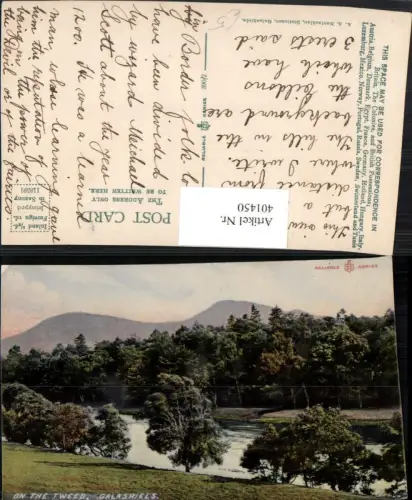 THIS SPACE MAY BE USED FOR CORRESPONDENCE IN
Britain, The Colonies, and British Possessions;
Austria, Belgium, Denmark, Egypt, France, Germany, Holland, Hungary, Italy,
Luxemburg, Mexico, Norway, Portugal, Russia, Sweden, Switzerland and Tunis
This view is
but a
distance from
where I write.
The hills in the
background are
the Eildons
which have
3 crests said
by Border folk to
have been divided
by wizard Michael
Scott about the year
1200. He was a learned
man, whose learning gave
him the reputation of
being in the power of
the Devil or of the fairies.
POST CARD
THE ADDRESS ONLY
TO BE WRITTEN HERE.
Inland ½d.
Foreign 1d.
Artikel Nr.
401450
ON THE TWEED, GALASHIELS.